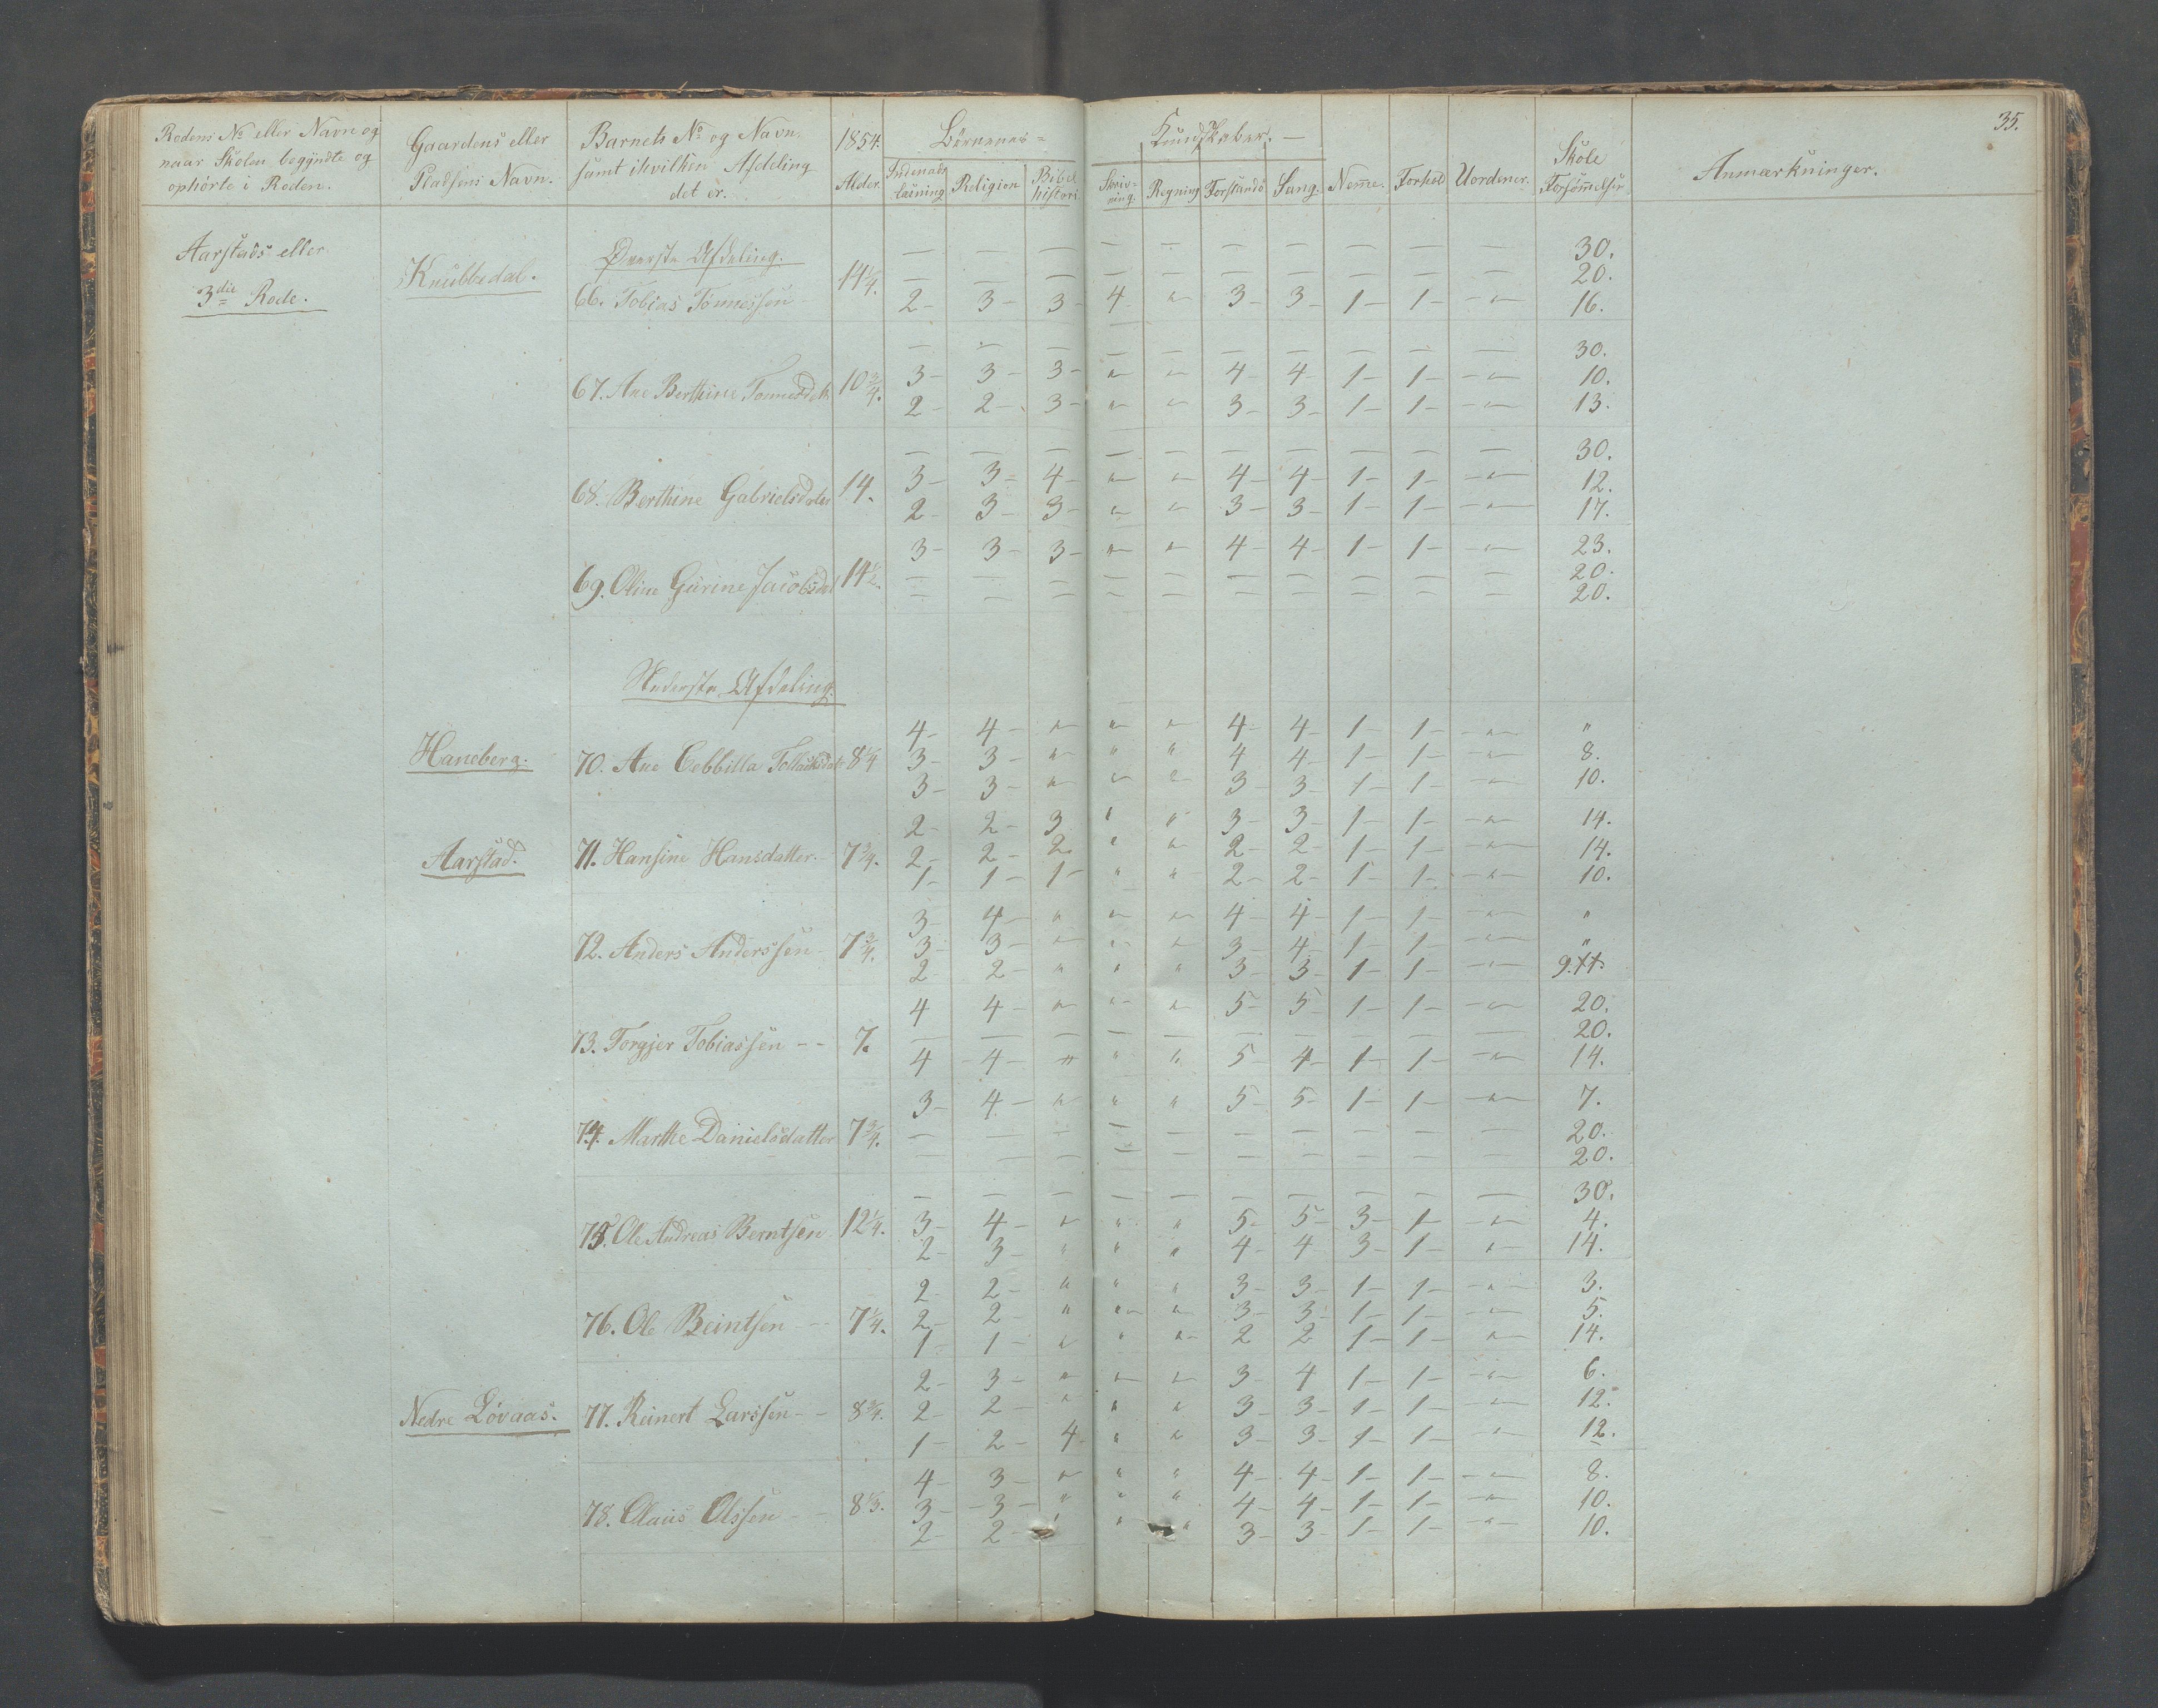 35.
Rodens No eller Navn og naar Skolen begyndte og ophörte i Roden. | Gaardens eller Pladsens Navn. | Barnets No og Navn. samt i hvilken Afdeling det er. | 1854. Alder. | Börnenes = Kundskaber. — | Religion | Bibelhistori | Skrivning. | Regning | Forstands | Sang. | Nemme. | Forhol | Uordener. | Skole Forsömmelser | Anmærkninger.
Aarstads eller 3die Rode.
Knubbedal.
Øverste Afdeling.
— — — — — — — — — — 30.
— — — — — — — — — — 20.
66. Tobias Tönnessen 14 1/4. 2 - 3 - 3 - 4 " 3 - 3 - 1 - 1 - - " - 16.
— — — — — — — — — — 30.
67. Ane Berthine Tönnesdtr 10 3/4. 3 - 3 - 3 - " " 4 - 4 - 1 - 1 - - " - 10.
2 - 2 - 3 - " " 3 - 3 - 1 - 1 - - " - 13.
— — — — — — — — — — 30.
68. Berthine Gabrielsdatter 14. 3 - 3 - 4 - " " 4 - 4 - 1 - 1 - - " - 12.
2 - 3 - 3 - " " 3 - 3 - 1 - 1 - - " - 17.
3 - 3 - 3 - " " 4 - 4 - 1 - 1 - - " - 23.
69. Oline Gurine Jacobsdat 14 1/2. — — — — — — — — — — 20.
— — — — — — — — — — 20.
Nederste Afdeling.
4 - 4 - " " " 4 - 4 - 1 - 1 - - " - "
Haneberg. 70. Ane Cebbilla Tollaksdatr 8 1/4 3 - 3 - " " " 4 4 - 1 - 1 - - " - 8.
3 - 3 - " " " 3 - 3 - 1 - 1 - - " - 10.
2 - 2 - 3 " " 3 - 3 - 1 - 1 - - " - 14.
Aarstad. 71. Hansine Hansdatter. 7 3/4. 2 - 2 - 2 " " 2 - 2 - 1 - 1 - - " - 14.
1 - 1 - 1 - " " 2 - 2 - 1 - 1 - - " - 10.
3 - 4 - " " " 4 - 4 - 1 - 1 - - " - "
72. Anders Anderssen - 7 3/4. 3 - 3 - " " " 3 - 4 - 1 - 1 - - " - "
2 2 - " " " 3 - 3 - 1 - 1 - - " - 9.
4 4 - " " " 5 - 5 1 - 1 - - " - 20.
73. Torgjer Tobiassen -- 7. — — — — — — — — — — 20.
4 - 4 - " " " 5 - 4 - 1 - 1 - - " - 14.
3 - 4 - " " " 5 - 5 - 1 - 1 - - " - 7.
74. Marthe Danielsdatter 7 3/4. — — — — — — — — — — 20.
— — — — — — — — — — 20.
— — — — — — — — — — 30.
75. Ole Andreas Berntsen 12 1/4. 3 - 4 - " " " 5 - 5 - 3 - 1 - - " - 4.
2 - 3 - " " " 4 - 4 3 - 1 - " - 14.
2 - 2 - " " " 3 - 3 - 1 - 1 - - " - 3.
76. Ole Beintsen --- 7 1/4. 2 - 2 - " " " 3 - 3 - 1 - 1 - - " - 5.
1 - 1 - " " " 2 2 1 - 1 - " - 14.
2 - 3 - " " " 3 - 4 1 - 1 - - " - 6.
Nedre Lövaas. 77. Reinert Larssen - - 8 3/4. 2 - 2 - " " " 3 - 3 - 1 - 1 - - " - 12.
1 - 2 - 4 " " 3 - 3 - 1 - 1 - - " - 12.
4 - 3 - " " " 4 - 4 - 1 - 1 - - " - 8.
78. Olaus Olssen - - 8 1/3. 3 - 3 - " " " 4 - 4 - 1 - 1 - - " - 10.
2 - 2 - " " " 3 - 3 - 1 - 1 - - " - 10.